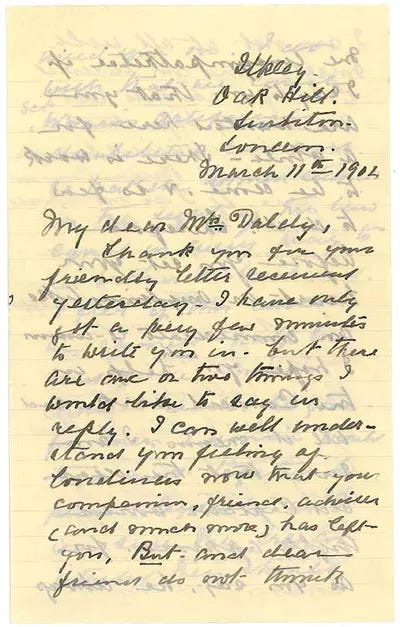 Ilkley.
Oak Hill.
Surbiton.
London.
March 11th 1902
My dear Mrs. Daldy,
Thank you for your
friendly letter received
yesterday. I have only
got a very few minutes
to write you in. but there
are one or two things I
would like to say in
reply. I can well under-
stand your feeling of
loneliness now that your
companion, friend, adviser
(and much more) has left
you, But and dear
friend do not think